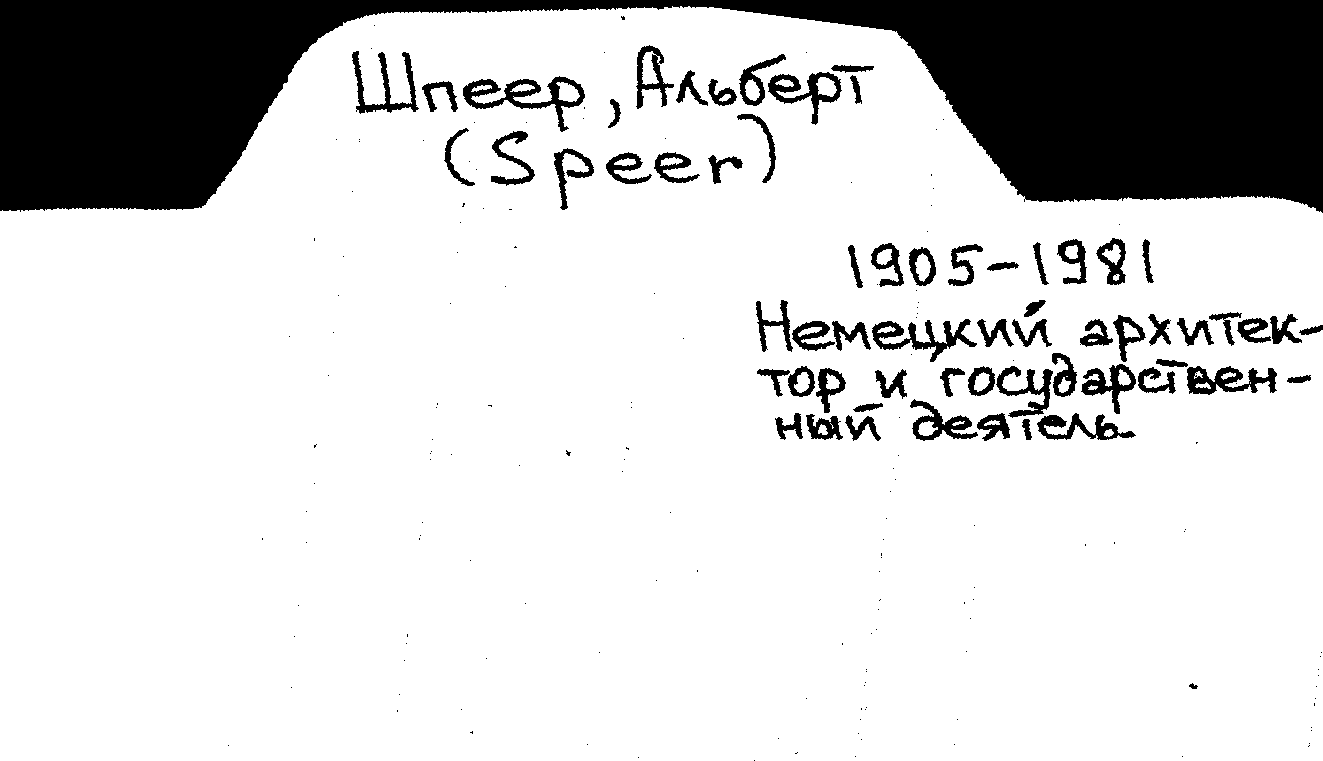 Шпеер, Альберт
(Speer)
1905-1981
Немецкий архитек-
тор и государствен-
ный деятель.